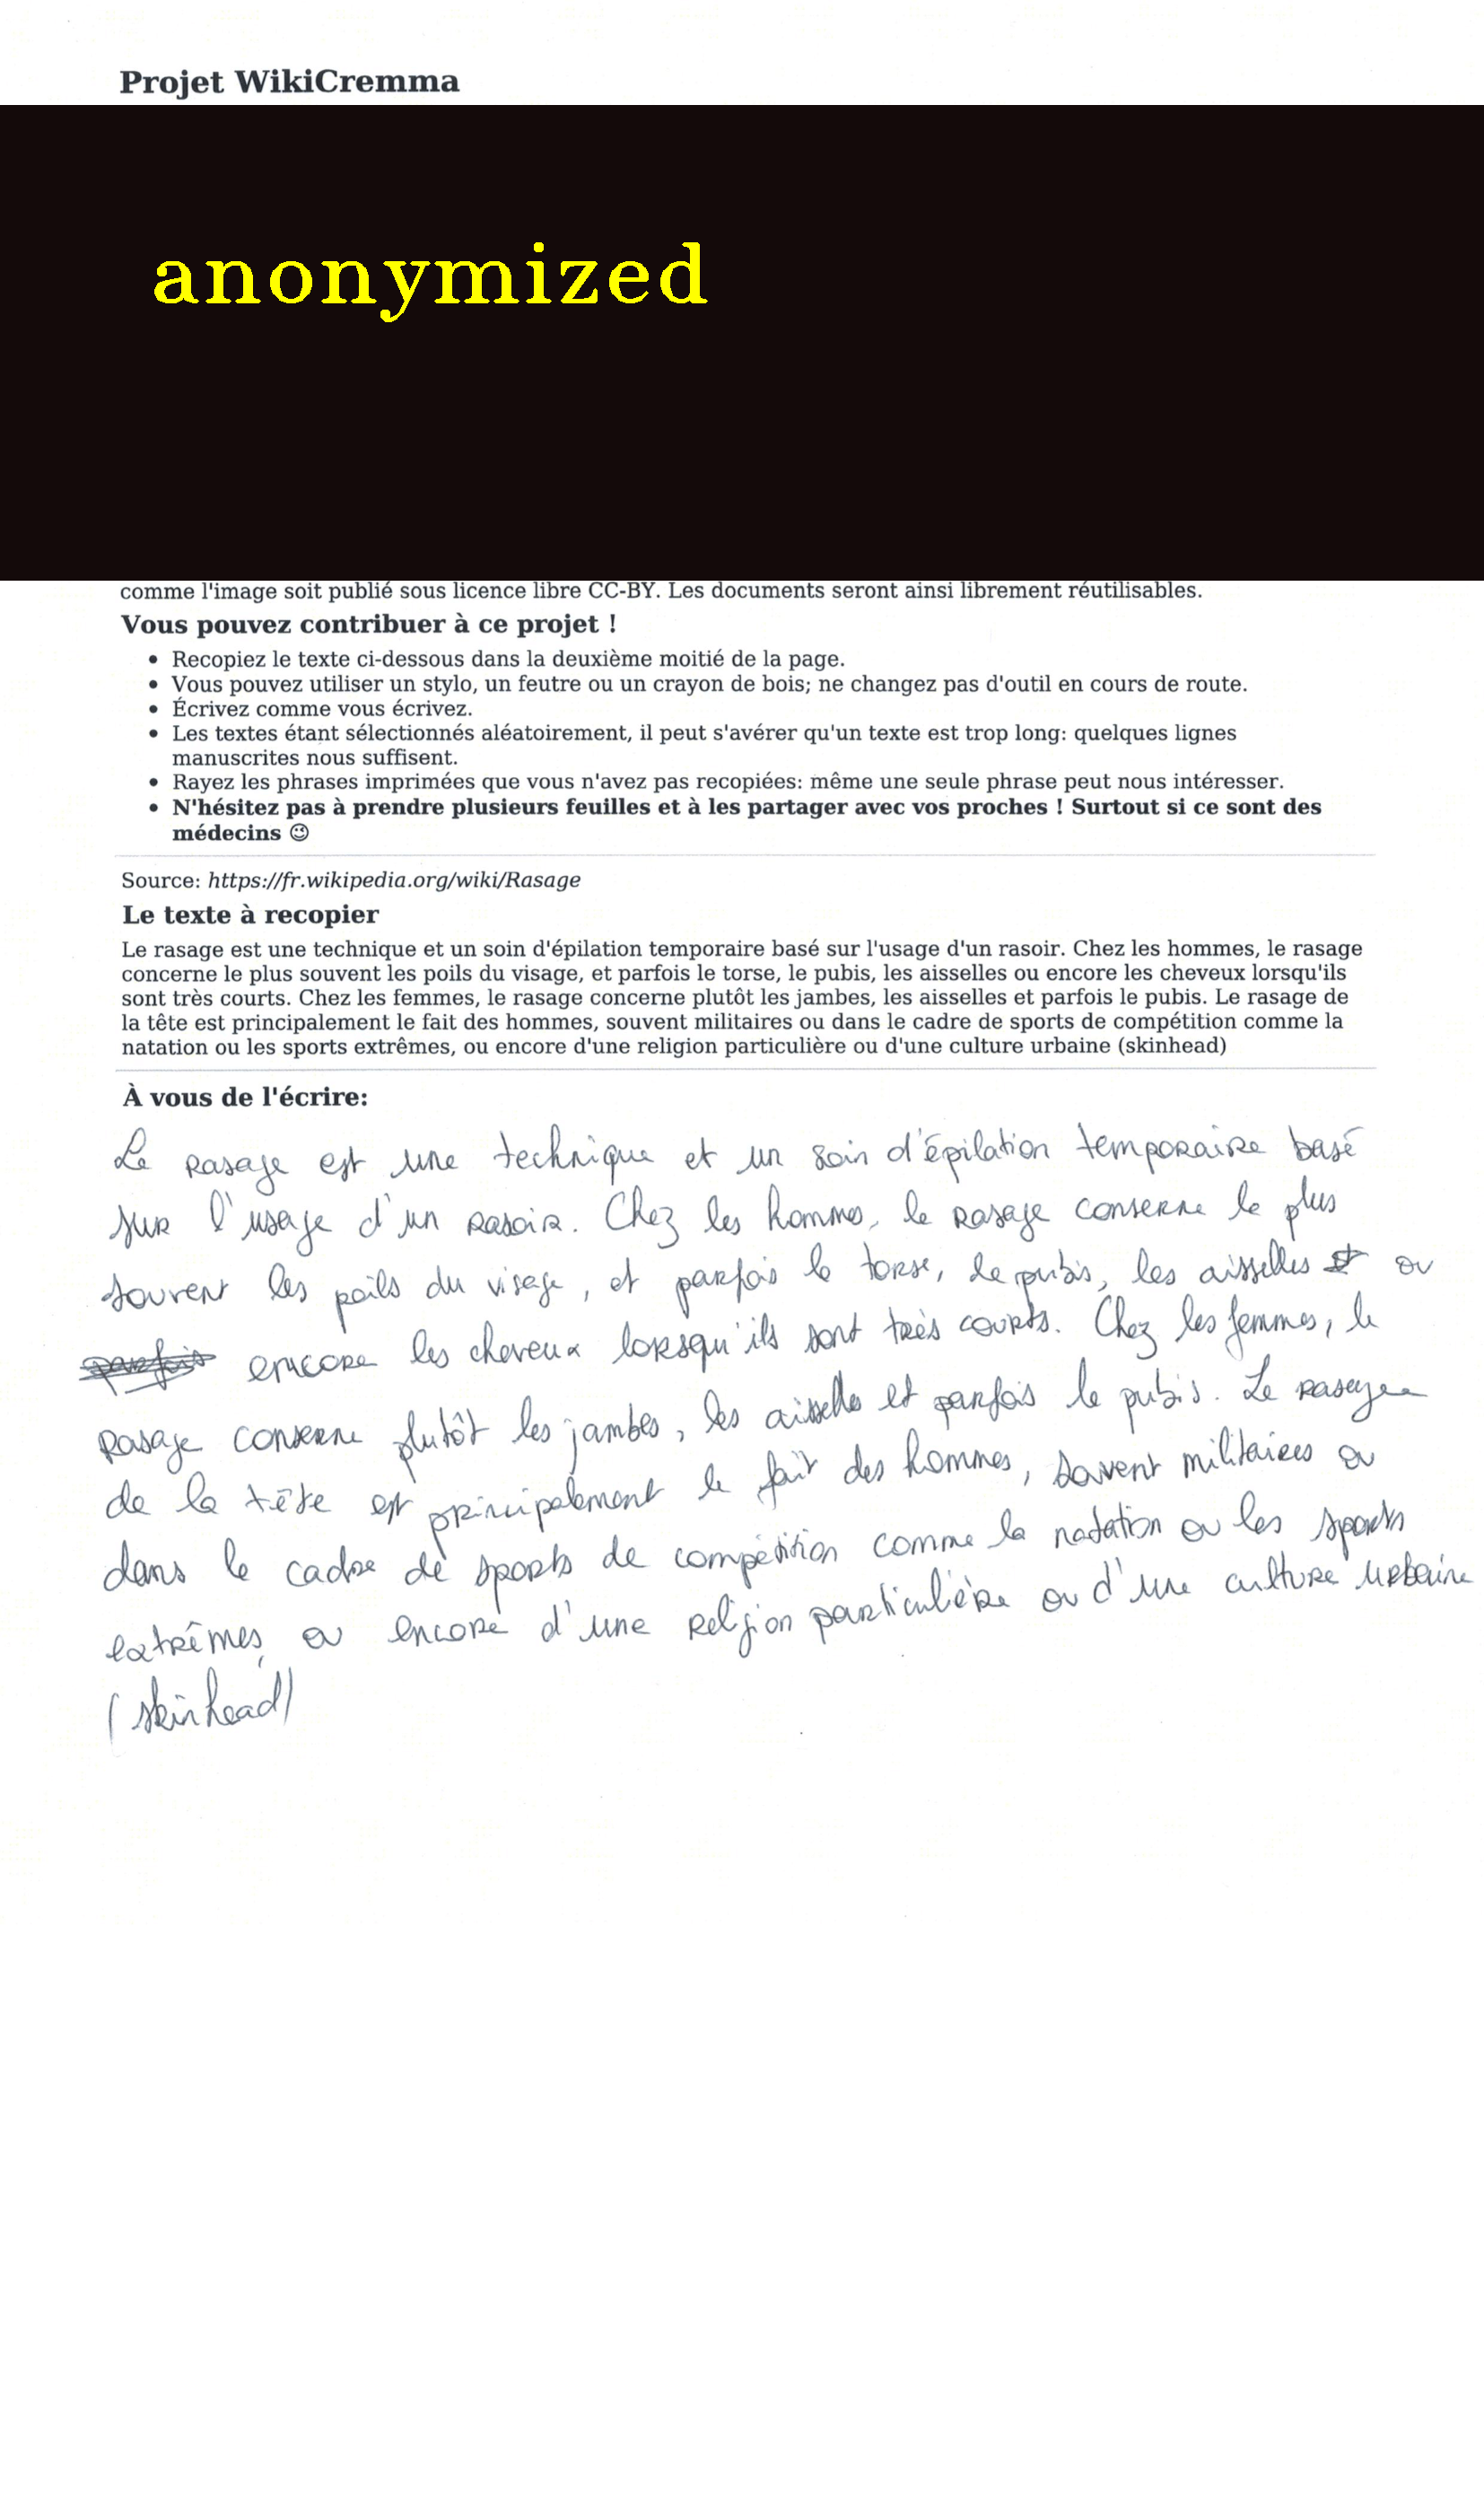 Projet WikiCremma
anonymized
comme l'image soit publié sous licence libre CC-BY. Les documents seront ainsi librement réutilisables.
Vous pouvez contribuer à ce projet !
• Recopiez le texte ci-dessous dans la deuxième moitié de la page.
• Vous pouvez utiliser un stylo, un feutre ou un crayon de bois; ne changez pas d'outil en cours de route.
• Écrivez comme vous écrivez.
• Les textes étant sélectionnés aléatoirement, il peut s'avérer qu'un texte est trop long: quelques lignes
manuscrites nous suffisent.
• Rayez les phrases imprimées que vous n'avez pas recopiées: même une seule phrase peut nous intéresser.
• N'hésitez pas à prendre plusieurs feuilles et à les partager avec vos proches ! Surtout si ce sont des
médecins 😉
Source: https://fr.wikipedia.org/wiki/Rasage
Le texte à recopier
Le rasage est une technique et un soin d'épilation temporaire basé sur l'usage d'un rasoir. Chez les hommes, le rasage
concerne le plus souvent les poils du visage, et parfois le torse, le pubis, les aisselles ou encore les cheveux lorsqu'ils
sont très courts. Chez les femmes, le rasage concerne plutôt les jambes, les aisselles et parfois le pubis. Le rasage de
la tête est principalement le fait des hommes, souvent militaires ou dans le cadre de sports de compétition comme la
natation ou les sports extrêmes, ou encore d'une religion particulière ou d'une culture urbaine (skinhead)
À vous de l'écrire:
Le rasage est une technique et un soin d'épilation temporaire basé
sur l'usage d'un rasoir. Chez les hommes, le rasage conserne le plus
souvent les poils du visage, et parfois le torse, le pubis, les aisselles et ou
parfois encore les cheveux lorsqu'ils sont très courts. Chez les femmes, le
rasage conserne plutôt les jambes, les aisselles et parfois le pubis. Le rasage
de la tête est principalement le fait des hommes, souvent militaires ou
dans le cadre de sports de compétition comme la natation ou les sports
extrêmes, ou encore d'une religion particulière ou d'une culture urbaine
(skinhead)